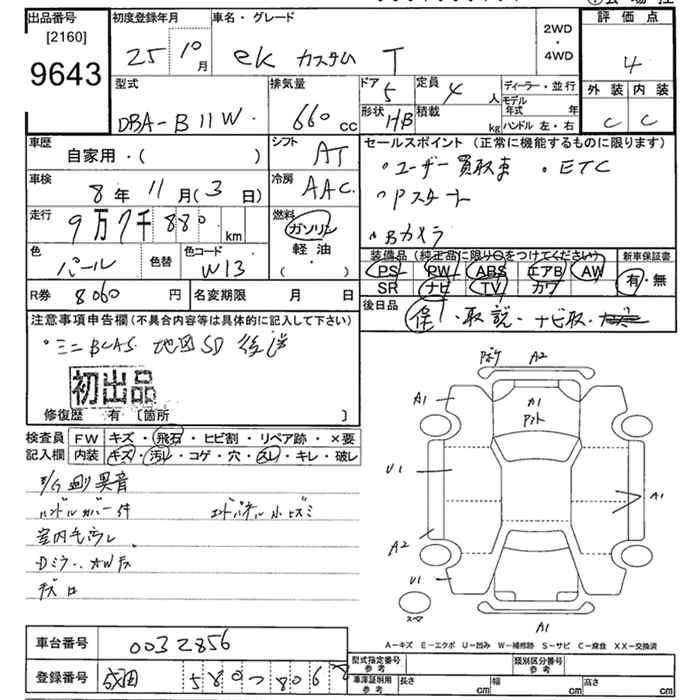 出品番号 初度登録年月 車名・グレード 評価点
[2160] 2WD
9643 25 10月 ek カスタム T ・ 4
4WD
外装 内装
型式 排気量 ドア 定員 ディーラー・並行
5 4人 モデル年式 年
DBA-B11W 660cc 形状 H/B 積載 kg ハンドル 左・右 C C
車歴 シフト セールスポイント(正常に機能するものに限ります)
自家用・( ) AT ・ユーザー買取車 ・ETC
車検 冷房 ・Pスタート
8年 11月(3日) AAC
走行 燃料 ・Bカメラ
9万7千880km ガソリン
軽油
( )
色 色替 色コード 装備品(純正品に限り○をつけてください) 新車保証書
パール W13 PS PW ABS エアB AW 有・無
SR ナビ TV カワ
R券 8060円 名変期限 月 日 後日品
保・取説・ナビ取・
注意事項申告欄(不具合内容等は具体的に記入して下さい)
・ミニBCAS 地図SD 後送
初出品
修復歴 有 〔箇所 〕
検査員 FW キズ・飛石・ヒビ割・リペア跡・×要
記入欄 内装 キズ・汚レ・コゲ・穴・スレ・キレ・破レ
E/G 異音
ハンドルカバー付 エンドパネル小キズミ
室内毛汚レ
Dミラー、AWキズ
キズ
A2
A1 A1 A1
U1
A2
U1
スペア A1
A-キズ E-エクボ U-凹み W-補修跡 S-サビ C-腐食 XX-交換済
車台番号 0032856
登録番号 成田 580 8068
型式指定番号 参考 類別区分番号 参考
車庫証明用 参考 長さ cm 幅 cm 高さ cm